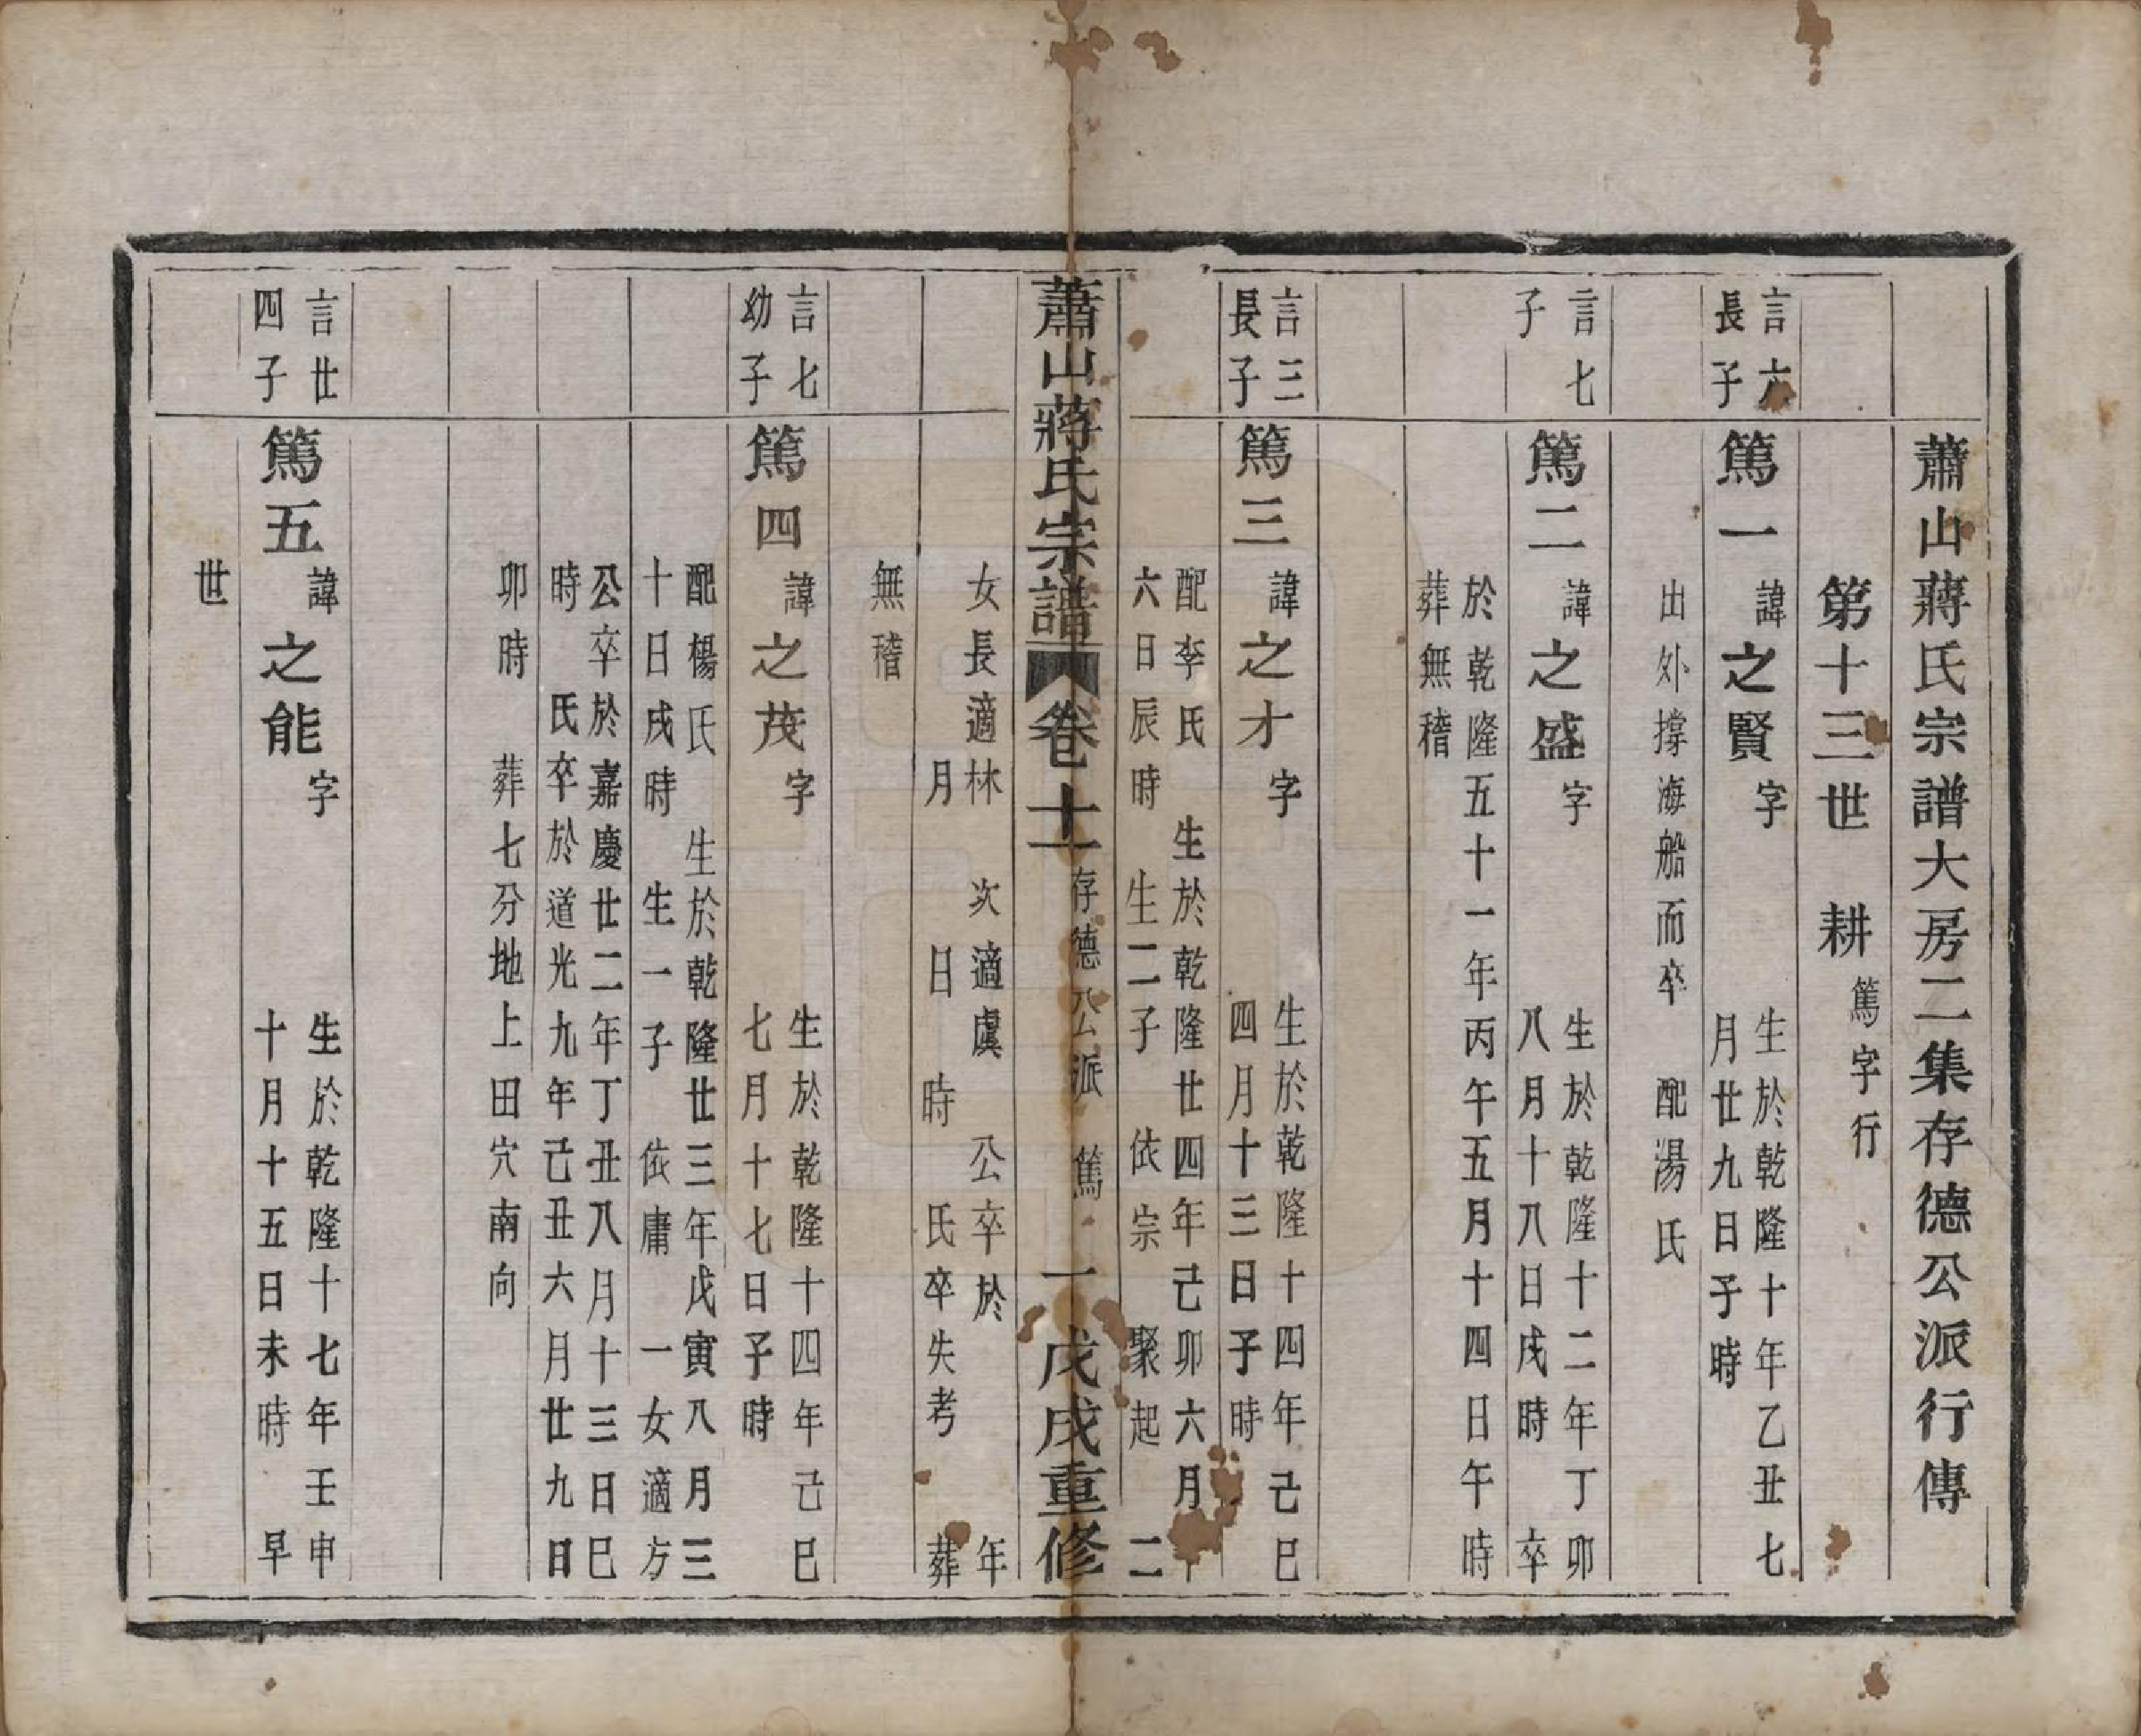 蕭山蔣氏宗譜大房二集存德公派行傳
第十三世 耕 篤字行
言六
長子
篤一 諱之賢 字
生於乾隆十年乙丑七
月廿九日子時
出外撐海船而卒 配湯氏
言七
子
篤二 諱之盛 字
生於乾隆十二年丁卯
八月十八日戌時 卒
於乾隆五十一年丙午五月十四日午時
葬無稽
言三
長子
篤三 諱之才 字
生於乾隆十四年己巳
四月十三日子時
配李氏 生於乾隆廿四年己卯六月十
六日辰時 生二子 依宗 聚起 二
蕭山蔣氏宗譜 卷十一 存德公派 篤 一 戊戌重修
女長適林 次適虞 公卒於 年
月 日 時 氏卒失考 葬
無稽
言七
幼子
篤四 諱之茂 字
生於乾隆十四年己巳
七月十七日子時
配楊氏 生於乾隆廿三年戊寅八月三
十日戌時 生一子 依庸 一女適方
公卒於嘉慶廿二年丁丑八月十三日巳
時 氏卒於道光九年己丑六月廿九日
卯時 葬七分地上田穴南向
言廿
四子
篤五 諱之能 字
生於乾隆十七年壬申
十月十五日未時 早
世